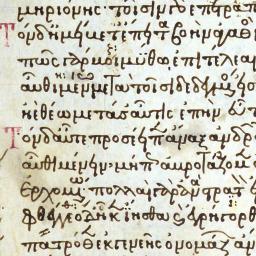 μηριόνης· τοῖσιν γὰρ ἐπετράπ
Τὸν δ' ἠμείβετ' ἔπειτα βοὴν ἀγαθὸ
πῶς γάρ μοι μύθῳ ἐπιτέλλεαι
αὖθι μένω μετὰ τοῖσι δεδεγμένος
ἠὲ θέω μετὰ σ' αὖτις ἐπὴν εὖ τ
Τὸν δ' αὖτε προσέειπεν ἄναξ ἀνδρ
αὖθι μένειν· μήπως ἀβροτάξομ
ἐρχομένω· πολλαὶ γὰρ ἀνὰ στρατ
φθέγγεο δ' ᾗ κεν ἴῃσθα καὶ ἐγρήγορθ
πατρόθεν ἐκ γενεῆς ὀνομάζων ἄν